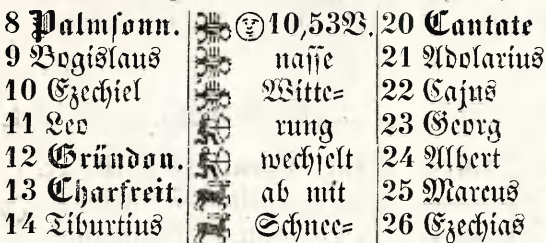 8 Palmsonn. 10,53V. 20 Cantate
9 Bogislaus nasse 21 Adolarius
10 Ezechiel Witte= 22 Cajus
11 Leo rung 23 Georg
12 Gründon. wechselt 24 Albert
13 Charfreit. ab mit 25 Marcus
14 Tiburtius Schnee= 26 Ezechias